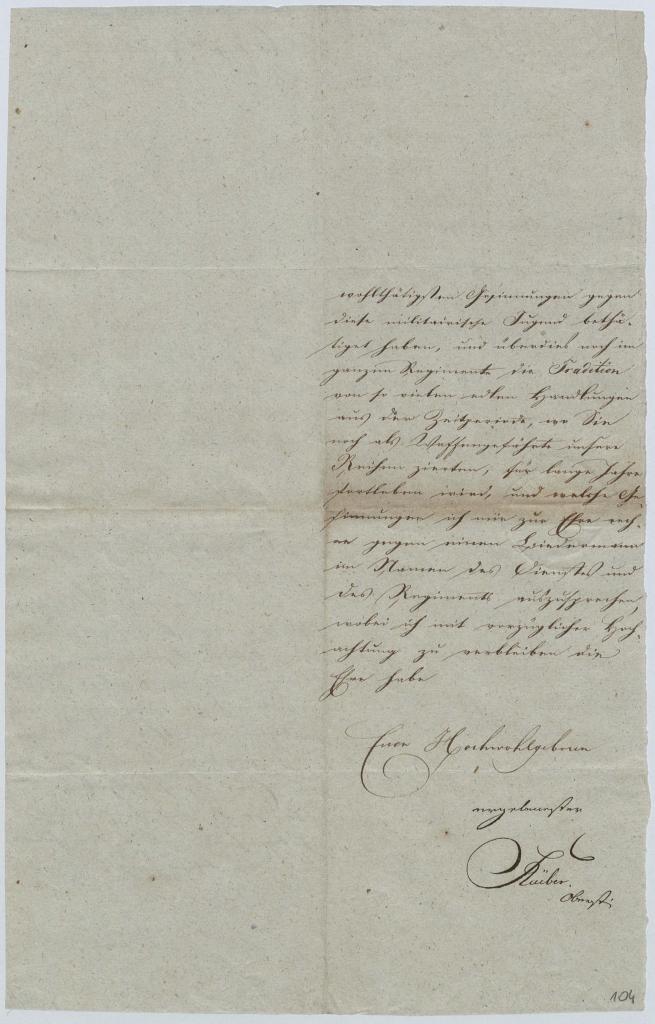 wohlthätigsten Gesinnungen gegen
diese militairische Jugend bethä-
tiget haben, und überdies noch im
ganzen Regimente die Tradition
von so vielen edlen Handlungen
aus der Zeitperiode, wo Sie
noch als Waffengefährte unsere
Reihen zierten, für lange Jahre
fortleben wird, und welche Ge-
sinnungen ich mir zur Ehre rech-
ne gegen einen Biedermann
im Namen des Dienstes und
des Regiments auszusprechen,
wobei ich mit vorzüglicher Hoch-
achtung zu verbleiben die
Ehre habe
Euer Hochwohlgeboren
ergebenster
Oberst
104